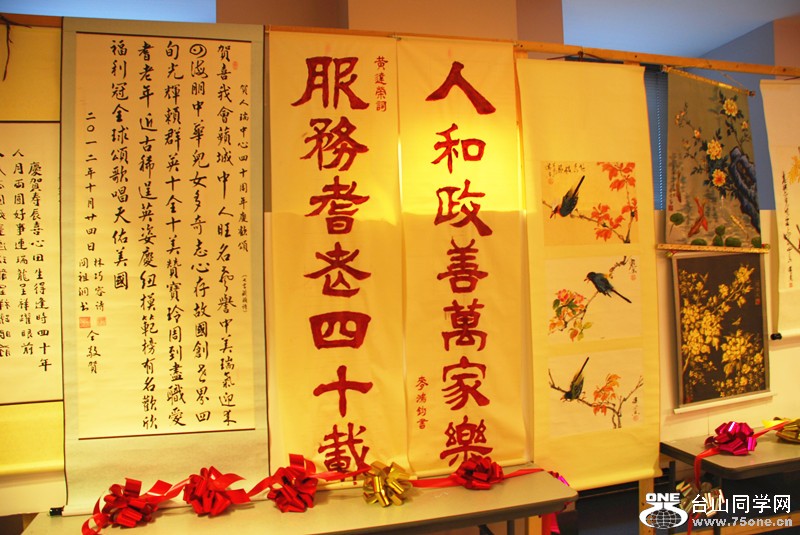 人和政善萬家樂
黃達榮詞
服務耆老四十載
賀人瑞中心四十周年慶歡頌
賀喜我會蘋城中人旺名參譽中美瑞氣迎來
四海朋中華兒女多奇志心存故國創世界四
旬光輝賴群英十全十美贊寶玲周到盡職愛
耆老年近古稀逞英姿慶紐模範榜有名歡欣
福利冠全球頌歌唱天佑美國
二〇一二年十月廿四日
林巧容詩
周祖洞書
仝敬賀
慶賀壽辰喜心田生得逢時四十年
人月兩圓好事連瑞龍呈祥躍眼前
ONE
台山同学网
www.75one.cn